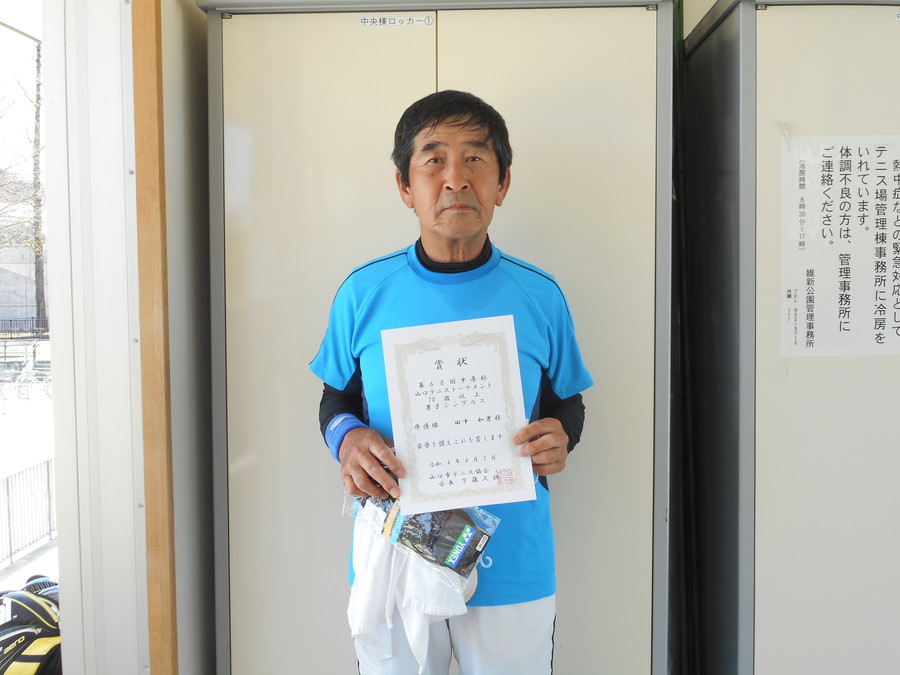 中央棟ロッカー①
賞状
第68回中原杯
山口テニストーナメント
70歳以上
男子シングルス
準優勝 田中 和男様
栄誉を讃えこれを賞します
山口市テニス協会
YONEX
熱中症などの緊急対応として
テニス場管理棟事務所に冷房を
いれています。
体調不良の方は、管理事務所に
ご連絡ください。
(冷房時間 8時30分~17時)
維新公園管理事務所